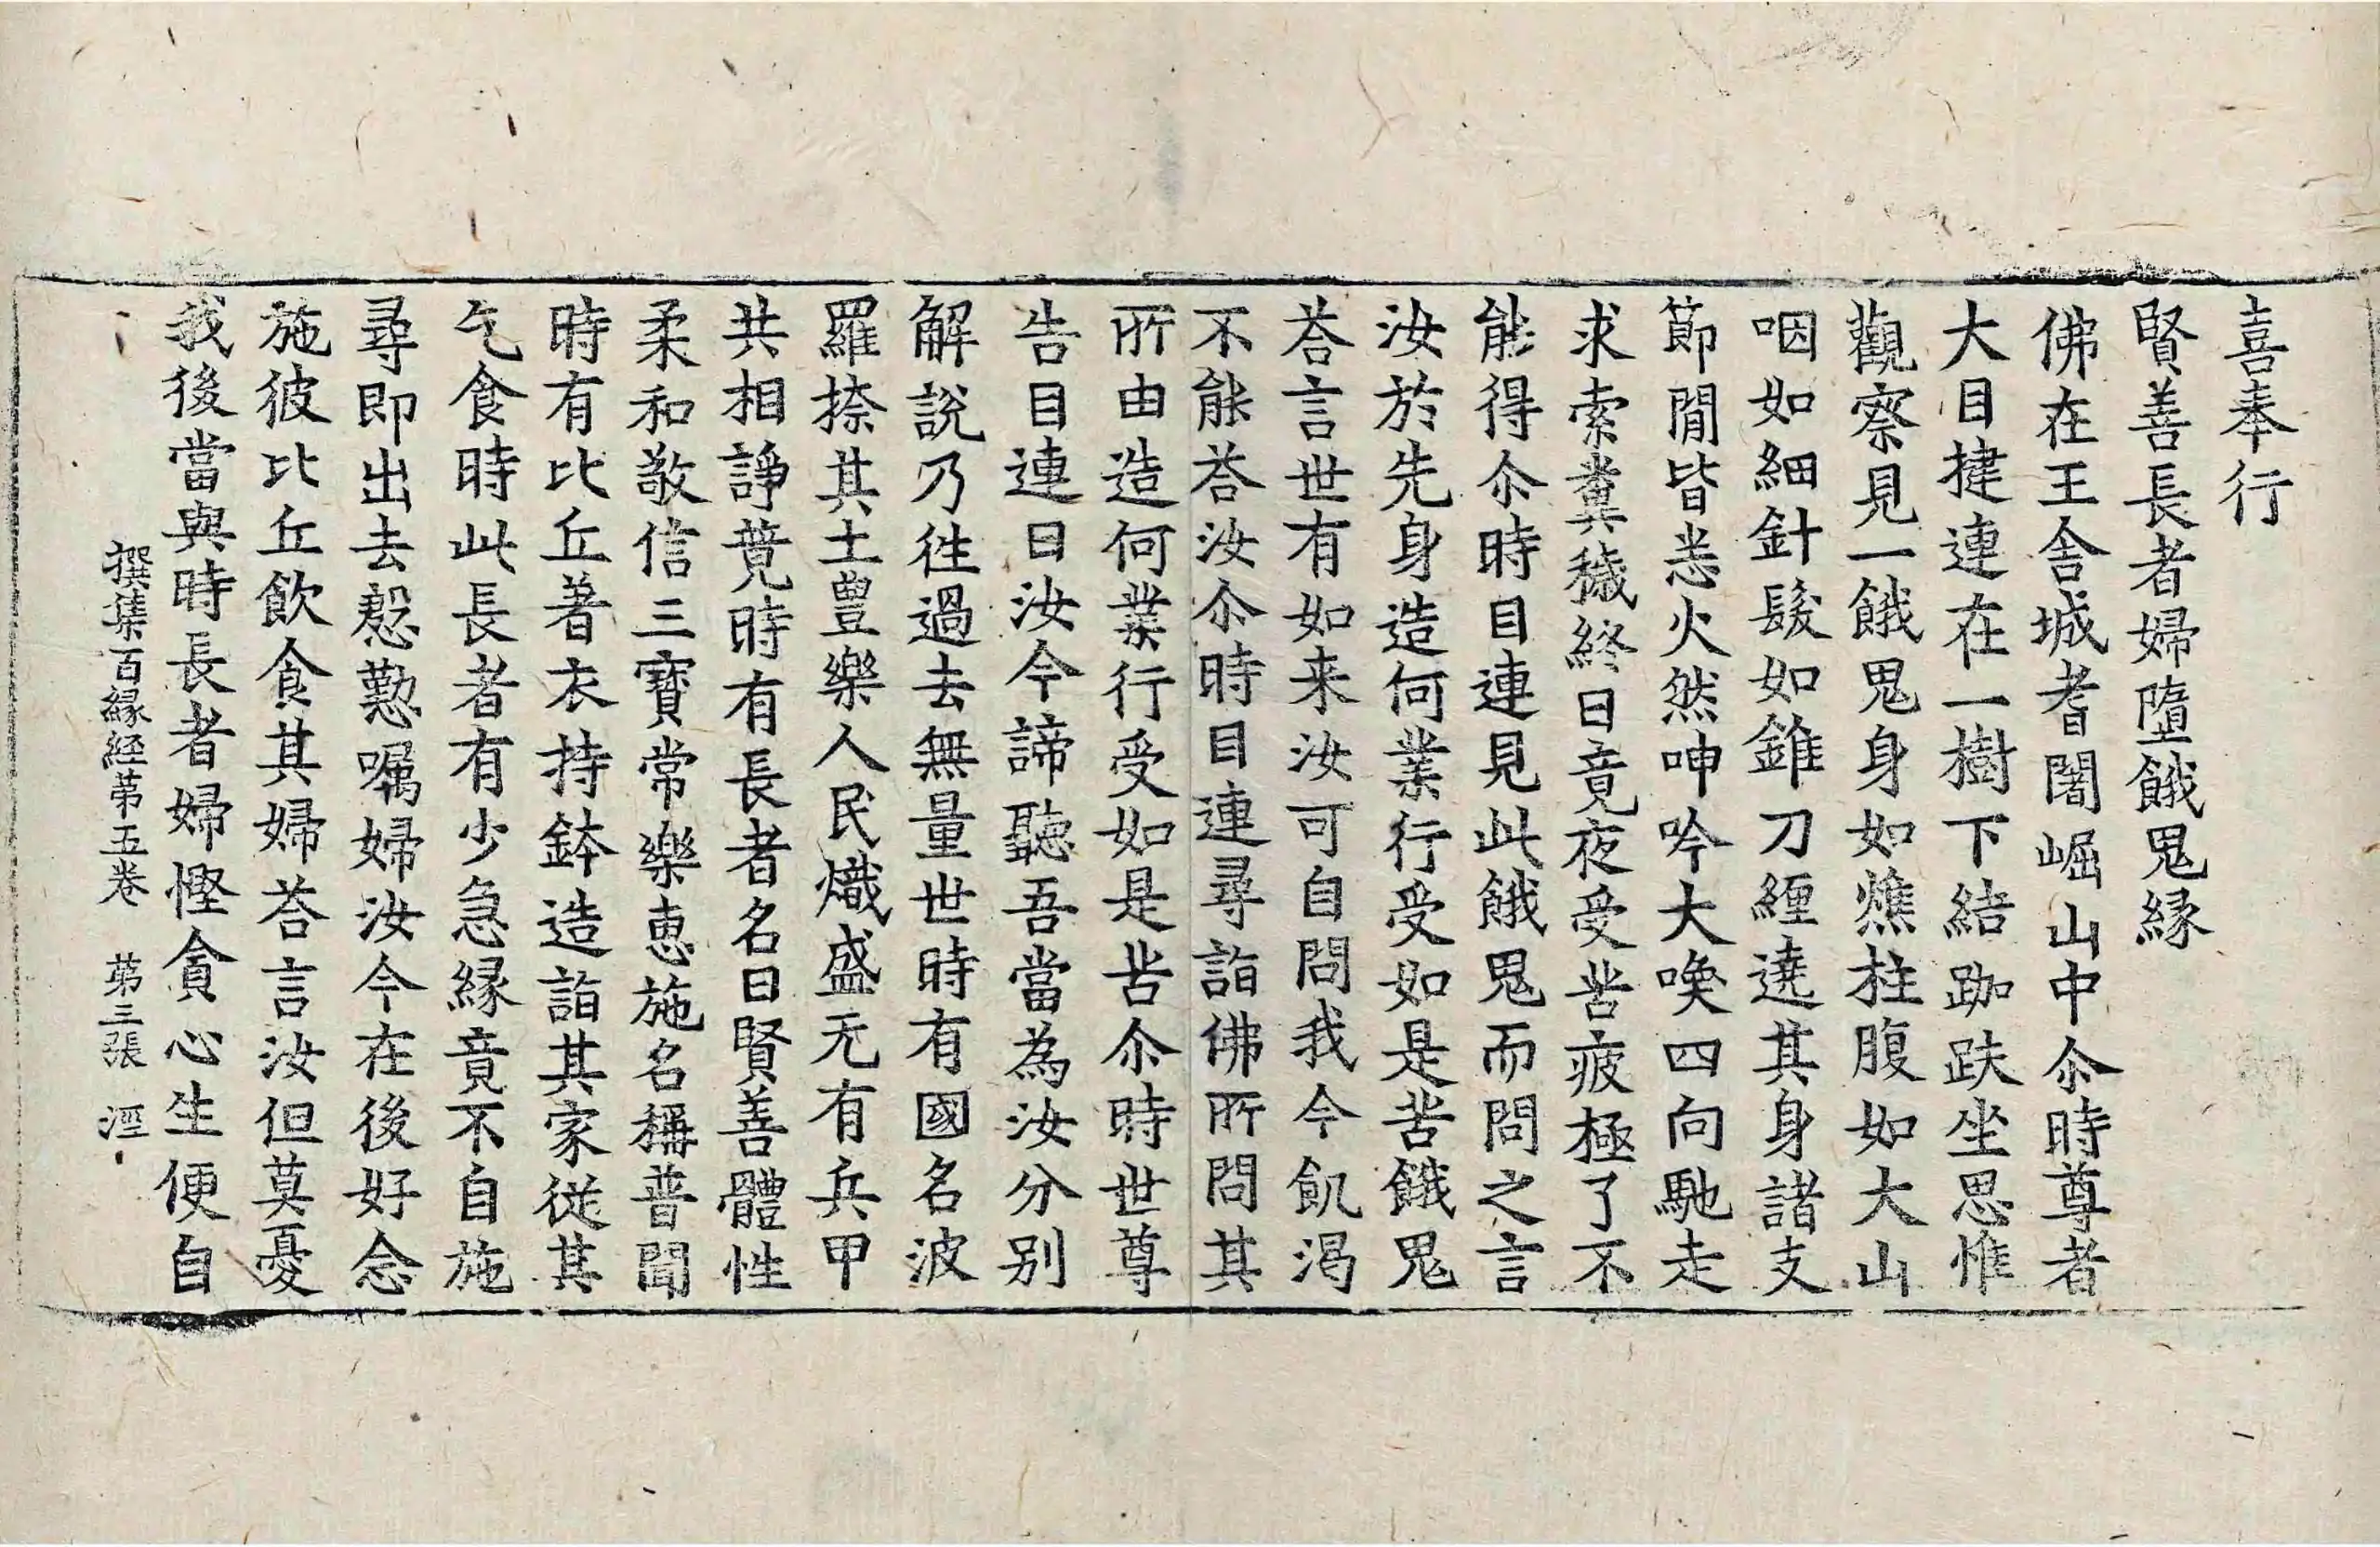 喜奉行
賢善長者婦墮餓鬼縁
佛在王舍城耆闍崛山中尒時尊者
大目揵連在一樹下結跏趺坐思惟
觀察見一餓鬼身如燋柱腹如大山
咽如細針髮如錐刀纏遶其身諸支
節間皆悉火然呻吟大喚四向馳走
求索糞穢終日竟夜受苦疲極了不
能得尒時目連見此餓鬼而問之言
汝於先身造何業行受如是苦餓鬼
荅言世有如来汝可自問我今飢渴
不能荅汝尒時目連尋詣佛所問其
所由造何業行受如是苦尒時世尊
告目連曰汝今諦聽吾當為汝分別
解說乃往過去無量世時有國名波
羅㮈其土豊樂人民熾盛无有兵甲
共相諍競時有長者名曰賢善體性
柔和敬信三寳常樂惠施名稱普聞
時有比丘著衣持鉢造詣其家従其
乞食時此長者有少急縁竟不自施
尋即出去慇懃囑婦汝今在後好念
施彼比丘飲食其婦荅言汝但莫憂
我後當與時長者婦慳貪心生便自
撰集百縁経苐五卷 苐三張 涇